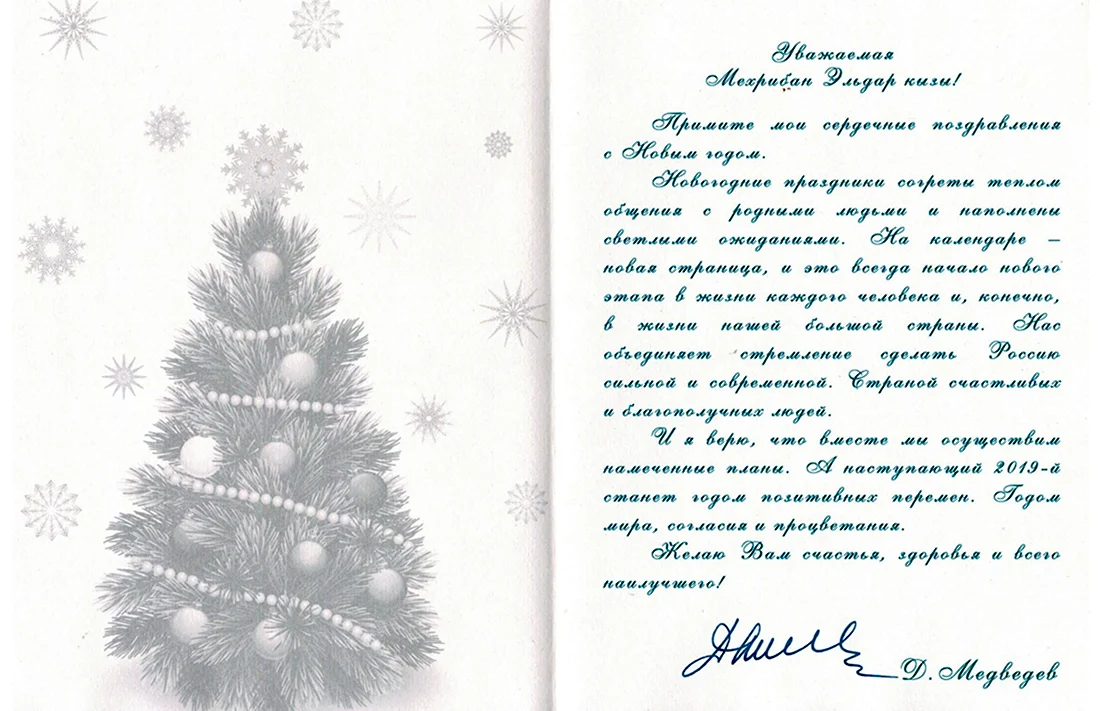 Уважаемая
Мехрибан Эльдар кызы!
Примите мои сердечные поздравления
с Новым годом.
Новогодние праздники согреты теплом
общения с родными людьми и наполнены
светлыми ожиданиями. На календаре –
новая страница, и это всегда начало нового
этапа в жизни каждого человека и, конечно,
в жизни нашей большой страны. Нас
объединяет стремление сделать Россию
сильной и современной. Страной счастливых
и благополучных людей.
И я верю, что вместе мы осуществим
намеченные планы. А наступающий 2019-й
станет годом позитивных перемен. Годом
мира, согласия и процветания.
Желаю Вам счастья, здоровья и всего
наилучшего!
Д. Медведев